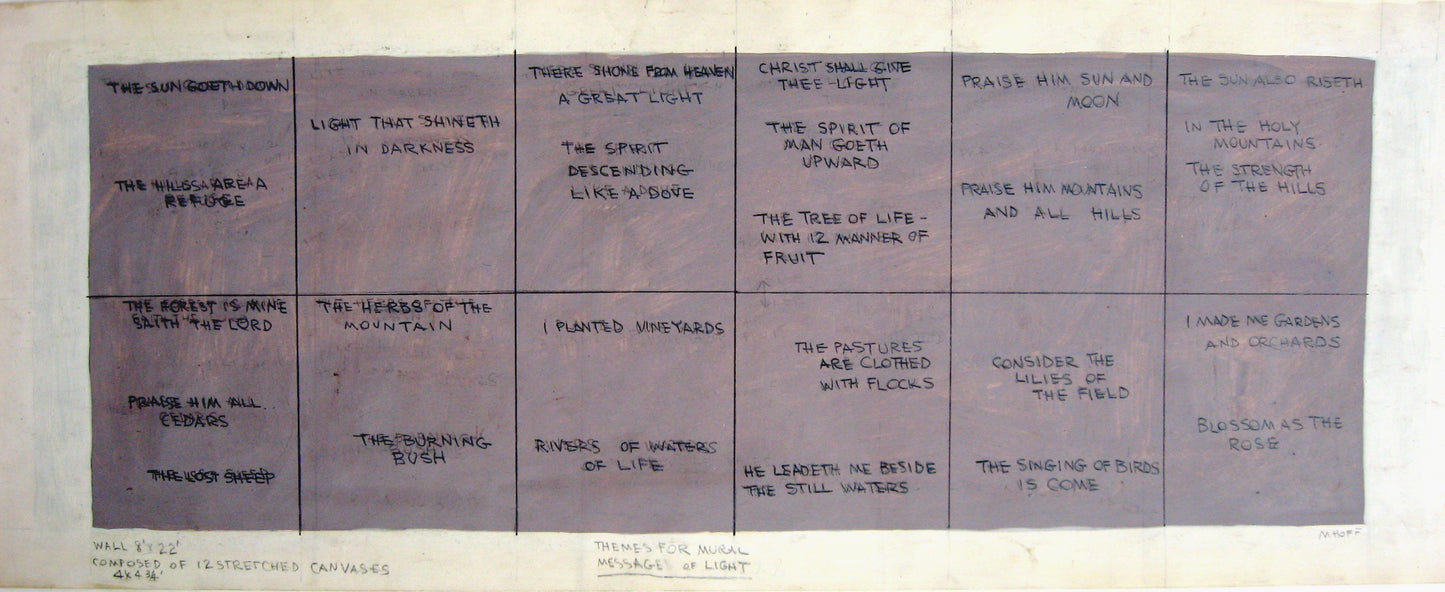 THE SUN GOETH DOWN
THE HILLS ARE A
REFUGE
LIGHT THAT SHINETH
IN DARKNESS
THERE SHONE FROM HEAVEN
A GREAT LIGHT
THE SPIRIT
DESCENDING
LIKE A DOVE
CHRIST SHALL GIVE
THEE LIGHT
THE SPIRIT OF
MAN GOETH
UPWARD
THE TREE OF LIFE -
WITH 12 MANNER OF
FRUIT
PRAISE HIM SUN AND
MOON
PRAISE HIM MOUNTAINS
AND ALL HILLS
THE SUN ALSO RISETH
IN THE HOLY
MOUNTAINS
THE STRENGTH
OF THE HILLS
THE FOREST IS MINE
SAITH THE LORD
PRAISE HIM ALL
CEDARS
THE LOST SHEEP
THE HERBS OF THE
MOUNTAIN
THE BURNING
BUSH
I PLANTED VINEYARDS
RIVERS OF WATERS
OF LIFE
THE PASTURES
ARE CLOTHED
WITH FLOCKS
HE LEADETH ME BESIDE
THE STILL WATERS
CONSIDER THE
LILIES OF
THE FIELD
THE SINGING OF BIRDS
IS COME
I MADE ME GARDENS
AND ORCHARDS
BLOSSOM AS THE
ROSE
WALL 8' x 22'
COMPOSED OF 12 STRETCHED CANVASES
4 x 4 3/4'
THEMES FOR MURAL
MESSAGE OF LIGHT
M HOFF